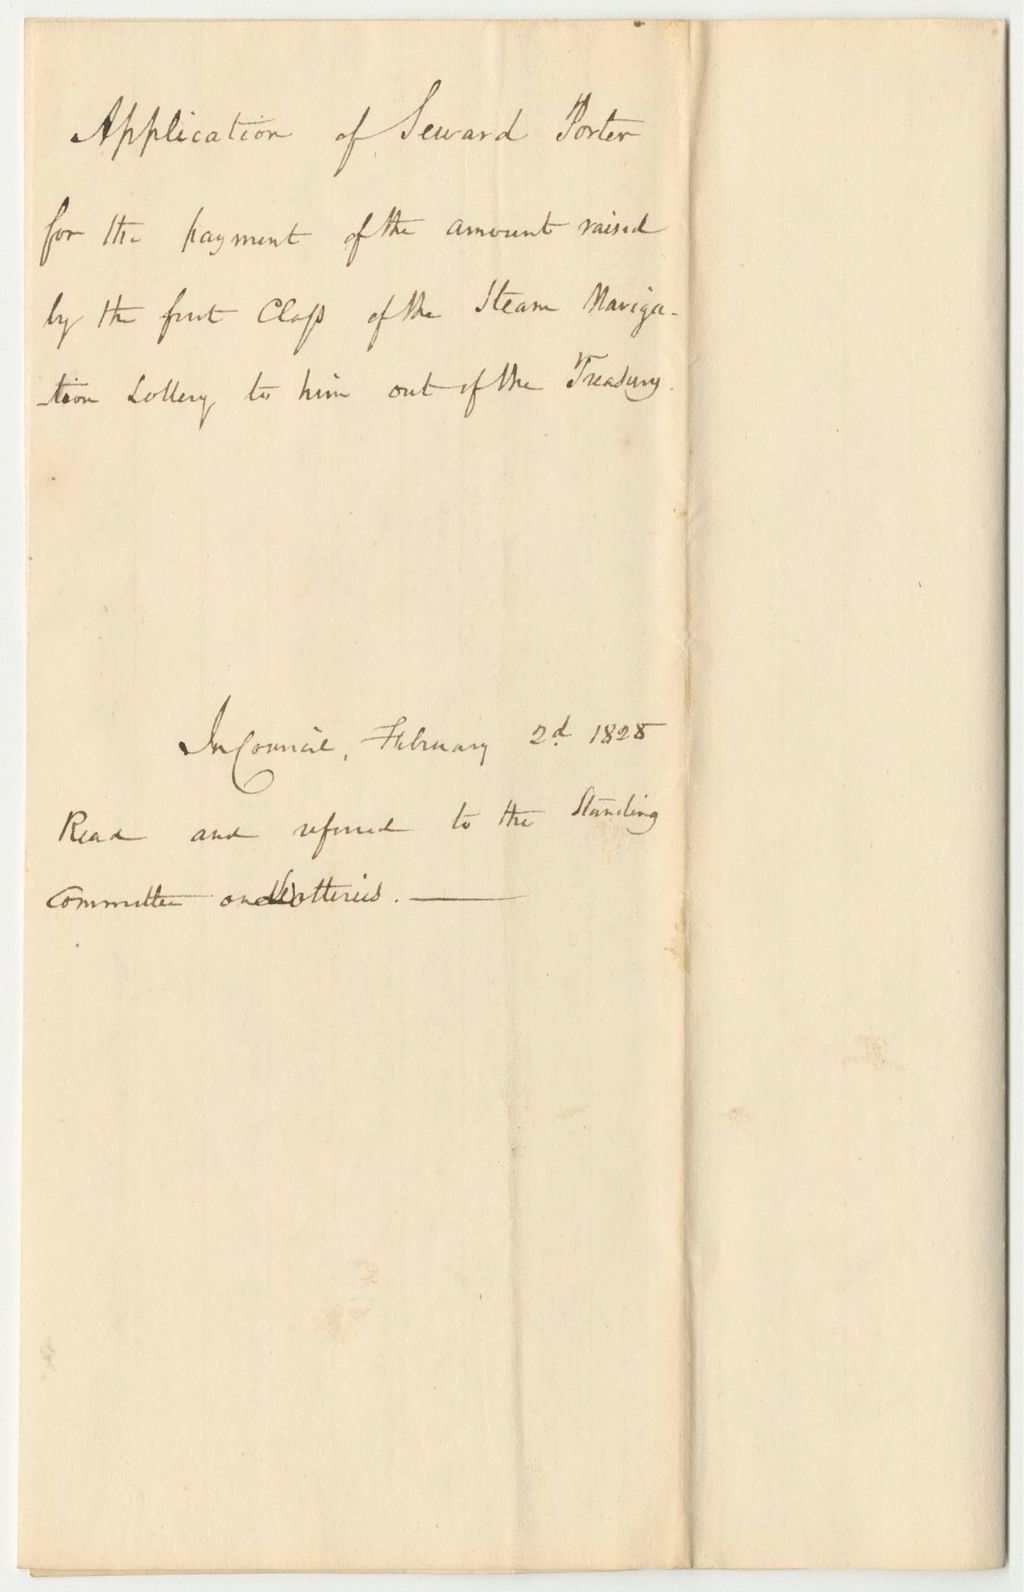 Application of Seward Porter
for the payment of the amount raised
by the first Class of the Steam Naviga-
tion Lottery to him out of the Treasury.
In Council, February 2d. 1828
Read and referred to the Standing
Committee on Lotteries.